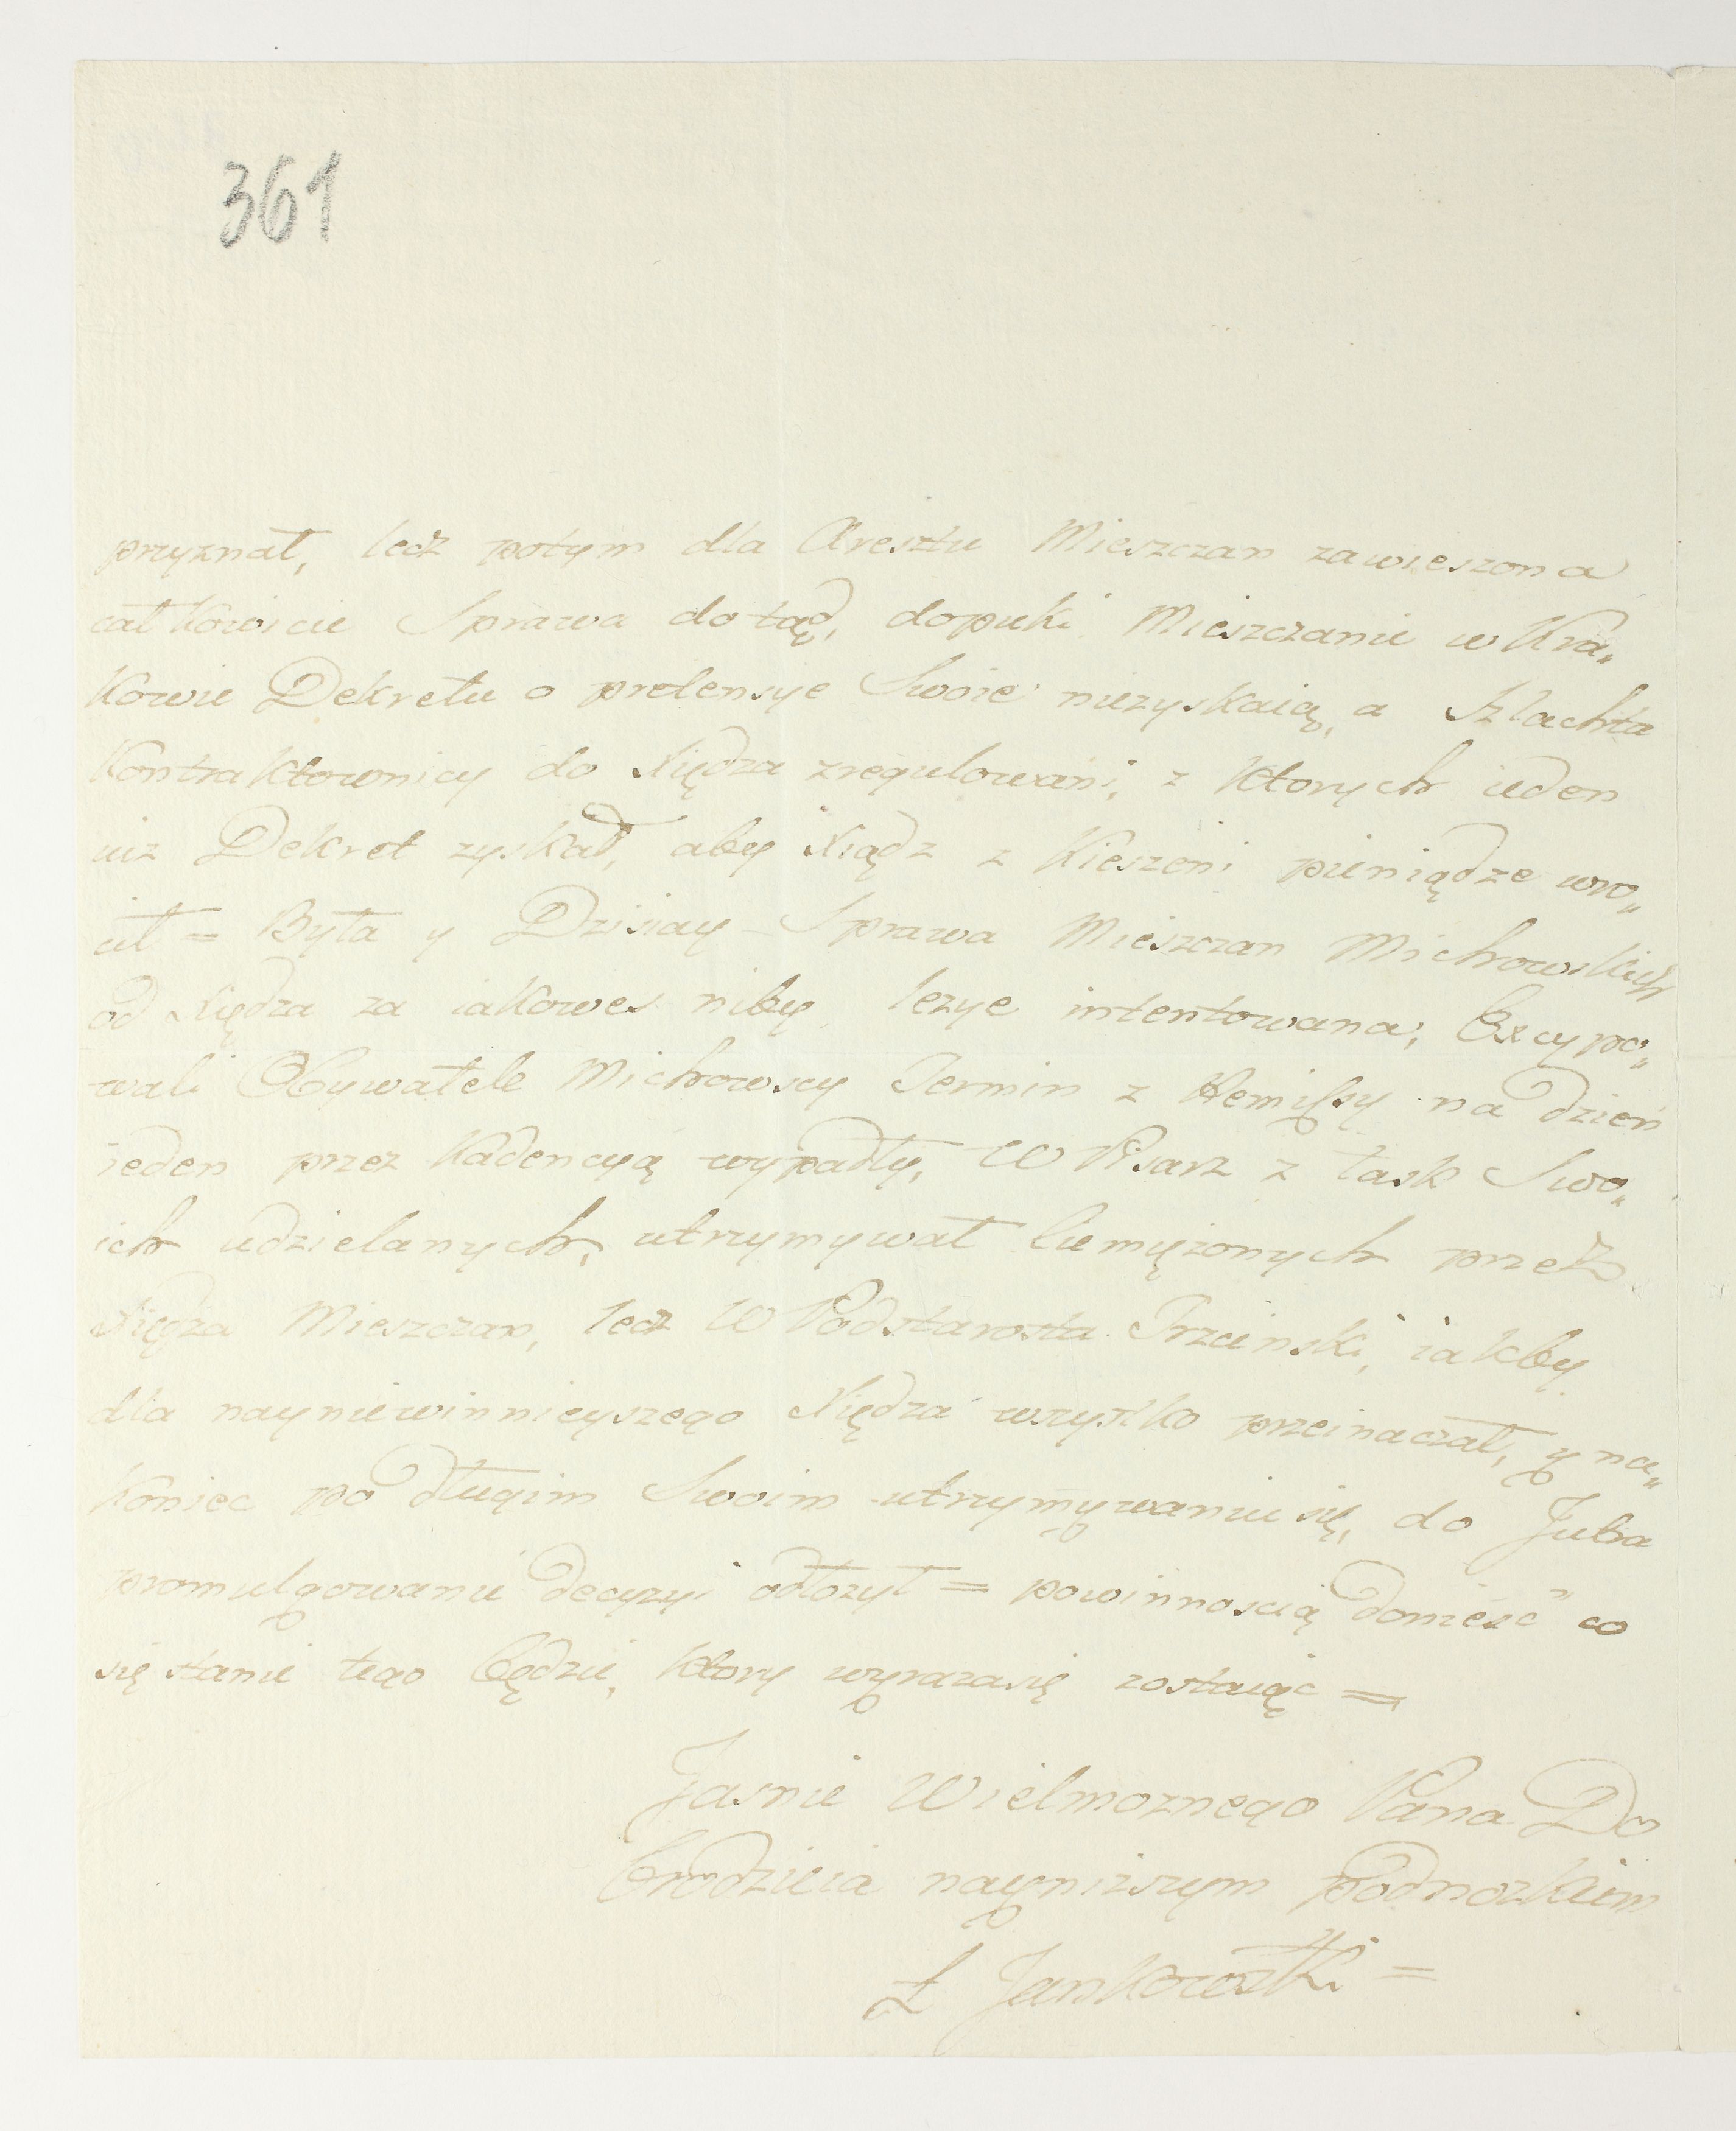 361
przyznał, lecz potym dla Aresztu Mieszczan zawieszona
całkowicie Sprawa dotąd, dopuki Mieszczanie w Kra„
kowie Dekretu o pretensye Swoie niezyskaią, a Szlachta
Kontraktownicy do Xiędza zregulowani, z ktorych ieden
iuz Dekret zyskał, aby Xiądz z Kieszeni pieniądze wro„
cił = Była y Dzisiay Sprawa Mieszczan Michowskich
od Xiędza za iakowes niby lezye intentowana, Excypo„
wali Obywatele Michowscy Termin z Remissy na dzień
ieden przez Kadencyą wypadły, W Pisarz z łask Swo„
ich udzielanych, utrzymywał Ciemiężonych przez
Xiędza Mieszczan, lecz W Podstarosta Trzcinski, iakby
dla nayniewinnieyszego Xiędza wszystko przeinaczał, y na„
koniec po długim Swoim utrzymywaniu się, do Jutra
promulgowanie decyzyi odłozył = powinnoscią donieść co
się stanie tego będzie, ktory wyraza się zostaiąc =
Jasnie Wielmoznego Pana Do
brodzieia naynizszym podnozkiem
Ł Jankowski =